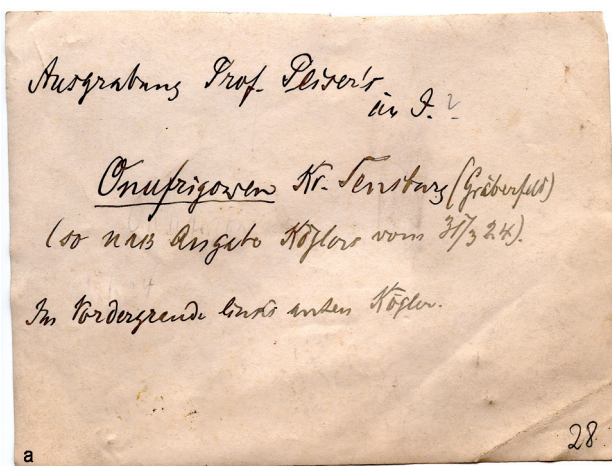 Ausgrabung Prof. Peiser's
in J. ?
Onufrigowen Kr. Sensburg (Gräberfeld)
(so nach Angabe Köglers vom 31/3 24).
Im Vordergrunde links unten Kögler.
a
28